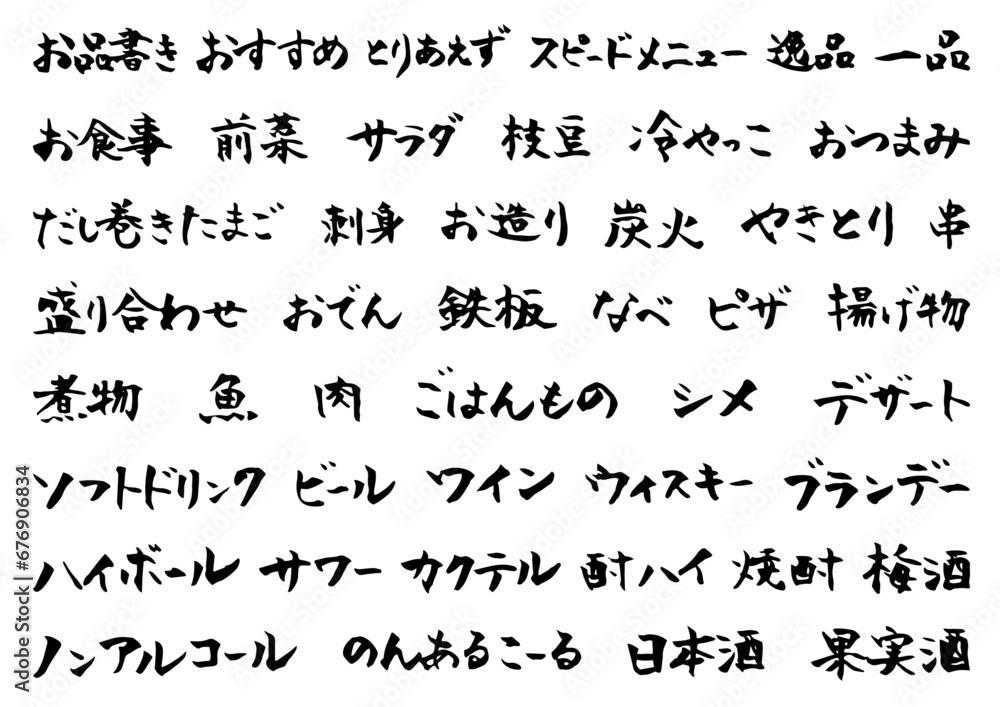 お品書き おすすめ とりあえず スピードメニュー 逸品 一品
お食事 前菜 サラダ 枝豆 冷やっこ おつまみ
だし巻きたまご 刺身 お造り 炭火 やきとり 串
盛り合わせ おでん 鉄板 なべ ピザ 揚げ物
煮物 魚 肉 ごはんもの シメ デザート
ソフトドリンク ビール ワイン ウィスキー ブランデー
ハイボール サワー カクテル 酎ハイ 焼酎 梅酒
ノンアルコール のんあるこーる 日本酒 果実酒
Adobe Stock | #676906834